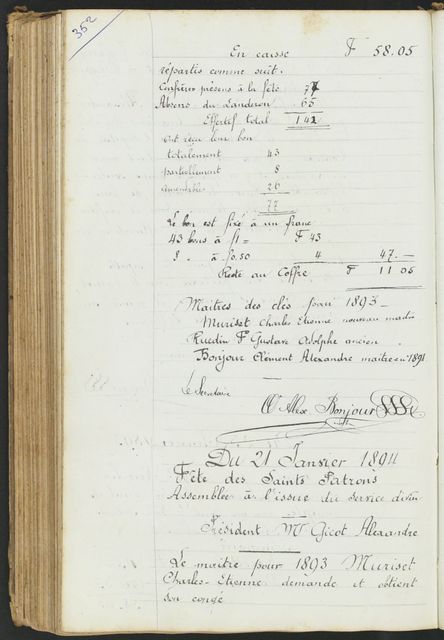 352
En caisse F 58.05
répartis comme suit.
Confrères présens à la fête 77
Absens du Landeron 65
Effectif total 142
Ont reçu leur bon
totalement 43
partiellement 8
amendables 26
77
Le bon est fixé à un franc
43 bons à f1 = F 43
8 " à f0.50 4 47.—
Reste au Coffre F 11 05
Maitres des clés pour 1893 —
Muriset Charles Etienne nouveau maître
Ruedin F Gustave Adolphe ancien
Bonjour Clément Alexandre maitre en 1891
Le Secrétaire
Alex Bonjour
Du 21 Janvier 1894
Fête des Saints Patrons
Assemblée à l'issue du service divin
Président Mr Gicot Alexandre
Le maître pour 1893 Muriset
Charles-Etienne demande et obtient
son congé